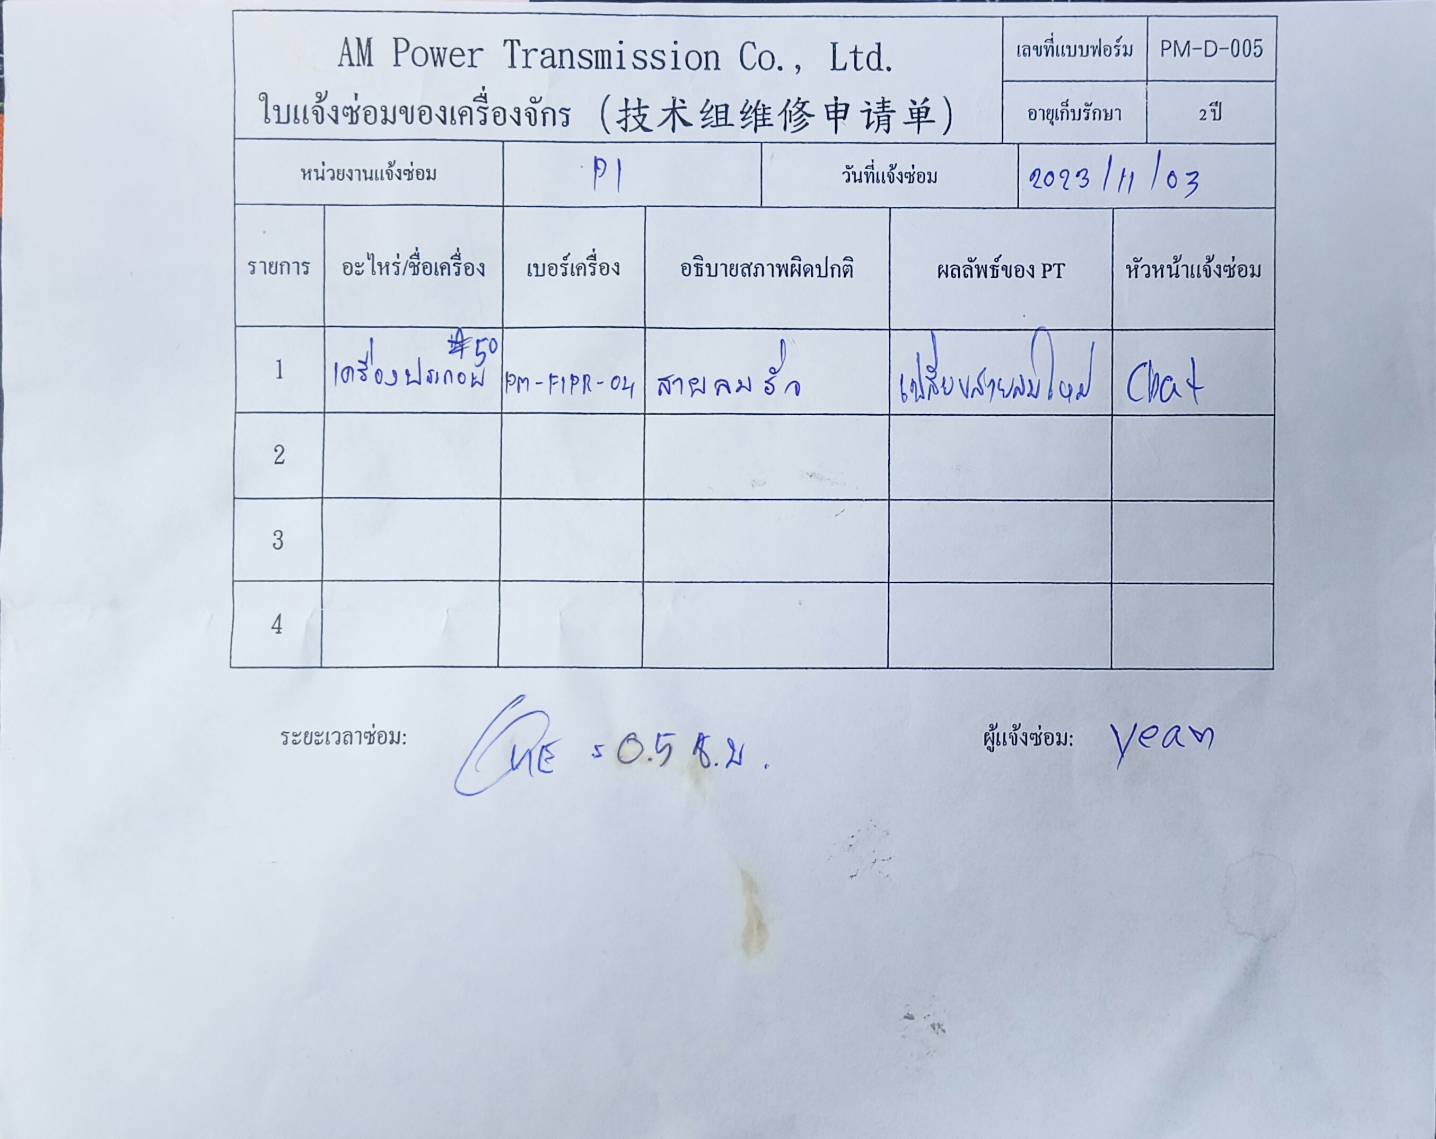 AM Power Transmission Co., Ltd.
ใบแจ้งซ่อมของเครื่องจักร (技术组维修申请单)
เลขที่แบบฟอร์ม PM-D-005
อายุเก็บรักษา 2 ปี
หน่วยงานแจ้งซ่อม P1 วันที่แจ้งซ่อม 2023/11/03
รายการ อะไหร่/ชื่อเครื่อง เบอร์เครื่อง อธิบายสภาพผิดปกติ ผลลัพธ์ของ PT หัวหน้าแจ้งซ่อม
1 เครื่องประกอบ #50 PM-FIPR-04 สายลมรั่ว เปลี่ยนสายลมใหม่ Chat
2
3
4
ระยะเวลาซ่อม: = 0.5 ช.ม. ผู้แจ้งซ่อม: Yean